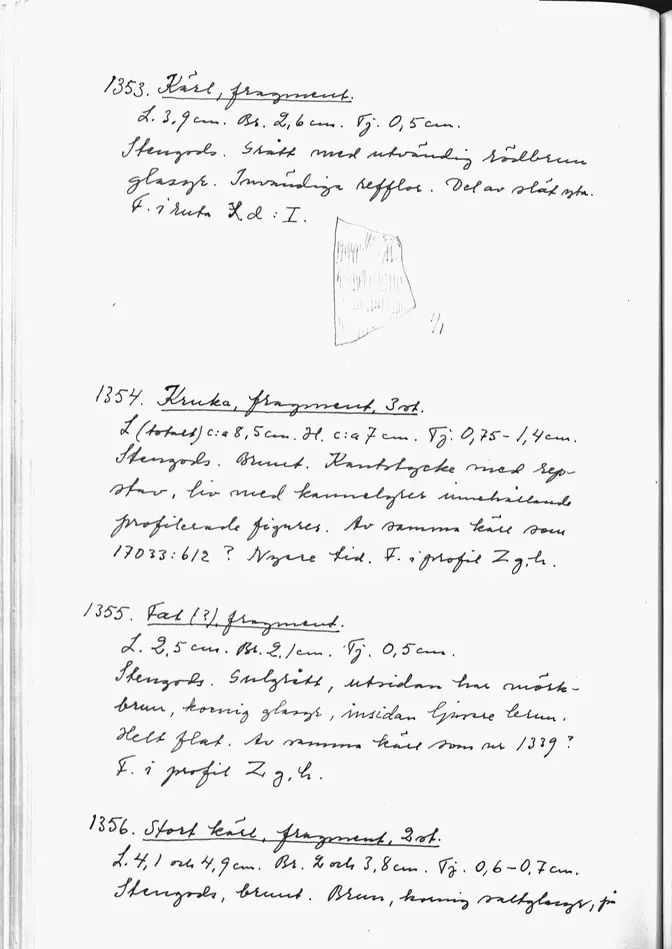 1353. Kärl, fragment.
L. 3,9 cm. Br. 2,6 cm. Tj. 0,5 cm.
Stengods. Grått med utvändig rödbrun
glasyr. Invändiga refflor. Del av slät yta.
F. i ruta X d : I.
1/1
1354. Kruka, fragment, 3 st.
L (totalt) c:a 8,5 cm. H. c:a 7 cm. Tj. 0,75-1,4 cm.
Stengods. Brunt. Kantstycke med rep-
stav, liv med kannelyrer innehållande
profilerade figurer. Av samma kärl som
17033:612? Nyare tid. F. i profil Z g, h.
1355. Fat (?), fragment.
L. 2,5 cm. Br. 2,1 cm. Tj. 0,5 cm.
Stengods. Gulgrått, utsidan har mörk-
brun, kornig glasyr, insidan ljusare brun.
Helt flat. Av samma kärl som nr 1339?
F. i profil Z g, h.
1356. Stort kärl, fragment, 2 st.
L. 4,1 och 4,9 cm. Br. 2 och 3,8 cm. Tj. 0,6-0,7 cm.
Stengods, brunt. Brun, kornig saltglasyr, på